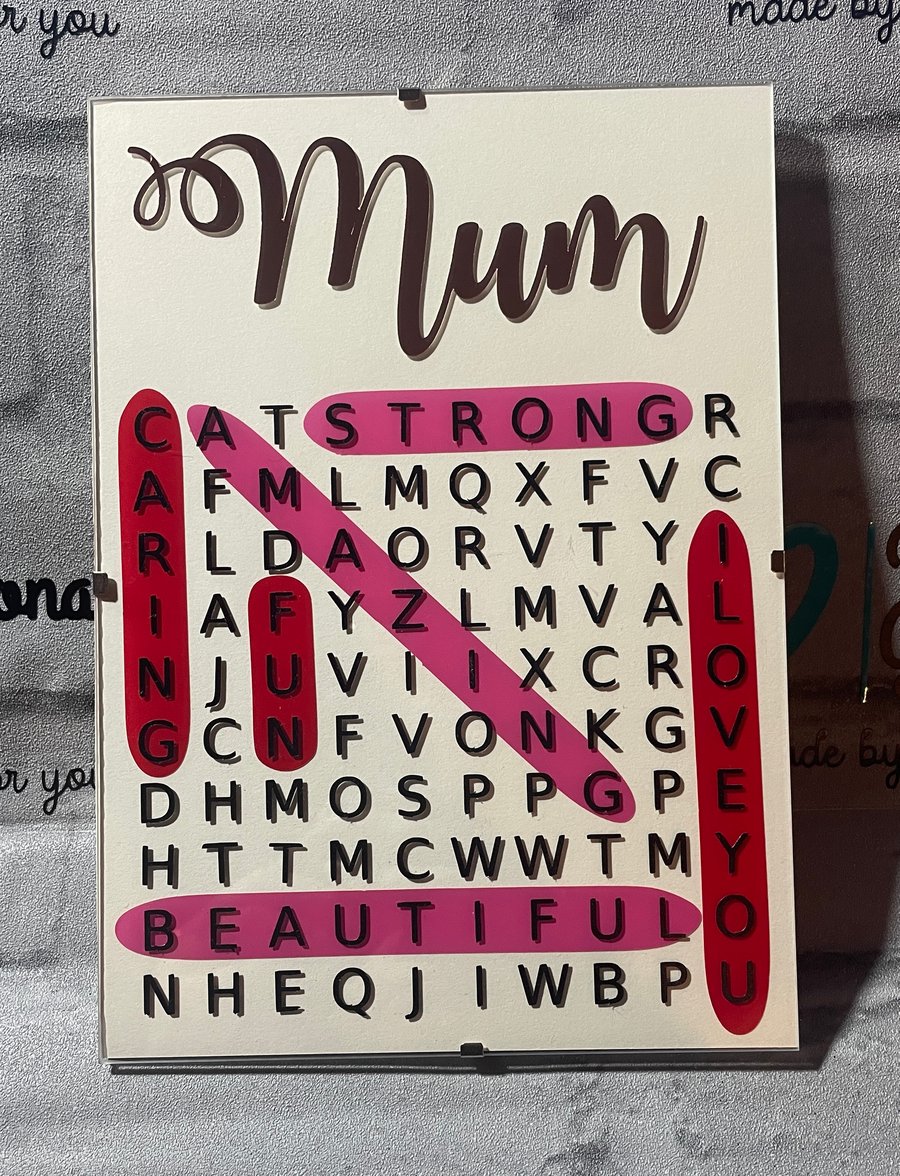 r you
made by
Mum
C A T S T R O N G R
A F M L M Q X F V C
R L D A O R V T Y I
I A F Y Z L M V A L
N J U V I I X C R O
G C N F V O N K G V
D H M O S P P G P E
H T T M C W W T M Y
B E A U T I F U L O
N H E Q J I W B P U
ona
r you
de by